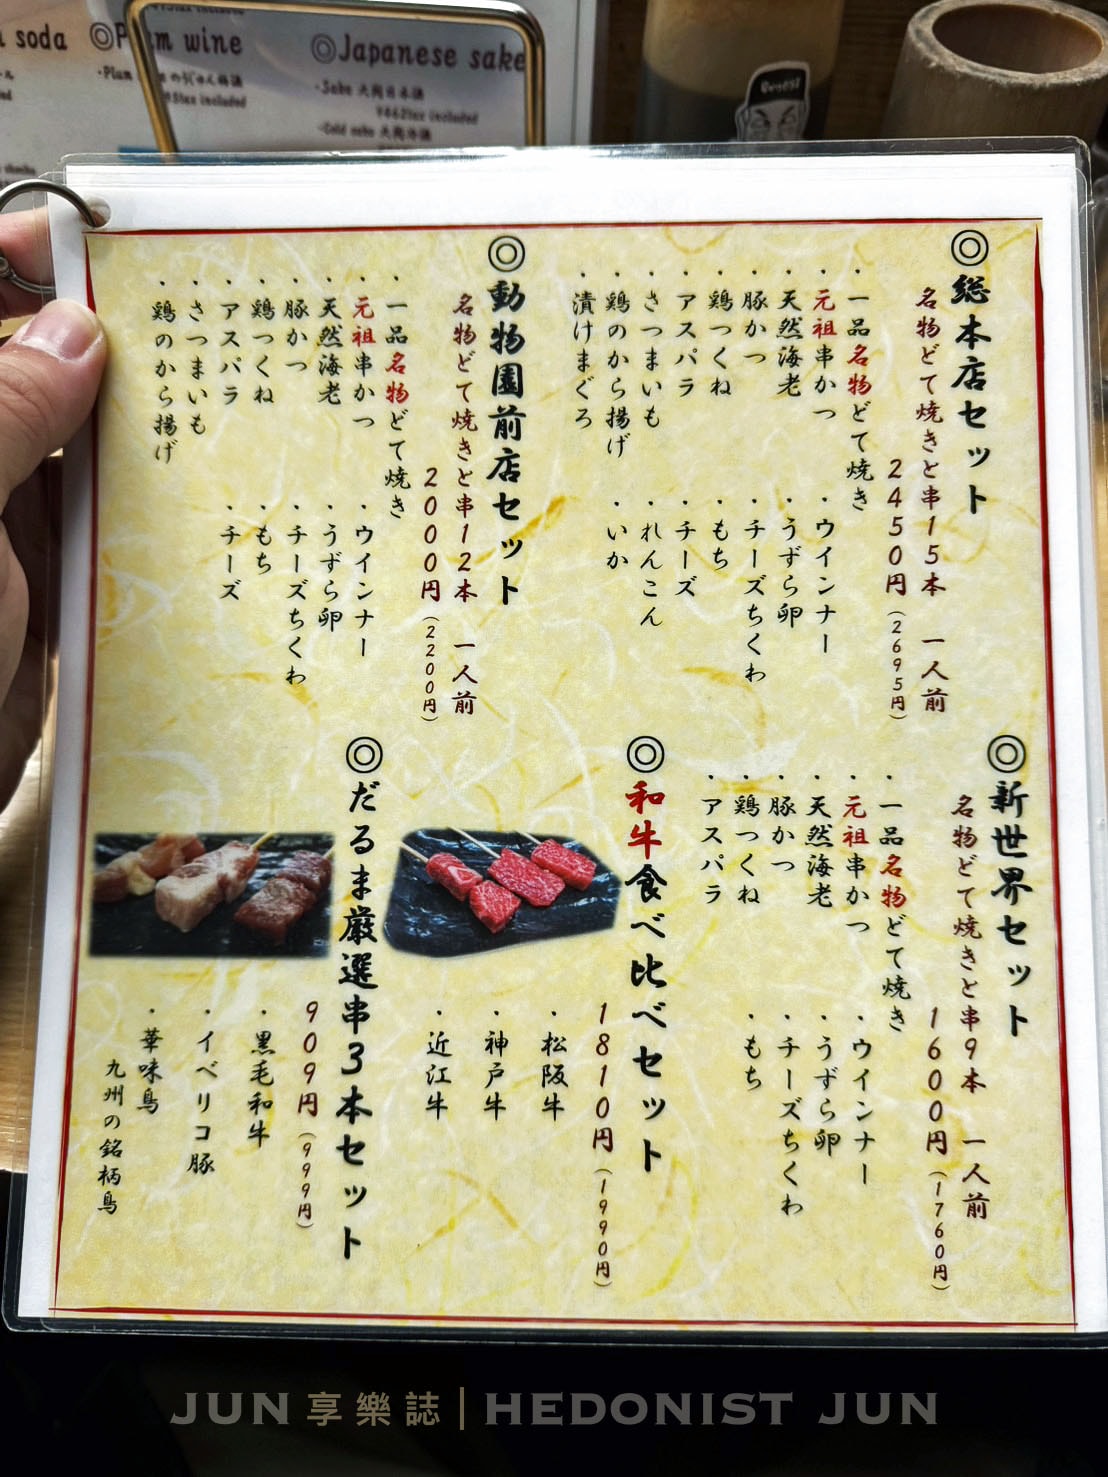 soda
◎Plum wine
・Plum
tax included
◎Japanese sake
・Sake 大関日本酒
¥462tax included
・Cold sake 大関冷酒
◎総本店セット
名物どて焼きと串15本 一人前
2450円(2695円)
・一品名物どて焼き
・元祖串かつ
・天然海老
・豚かつ
・鶏つくね
・アスパラ
・さつまいも
・鶏のから揚げ
・漬けまぐろ
・ウインナー
・うずら卵
・チーズちくわ
・もち
・チーズ
・れんこん
・いか
◎動物園前店セット
名物どて焼きと串12本 一人前
2000円(2200円)
・一品名物どて焼き
・元祖串かつ
・天然海老
・豚かつ
・鶏つくね
・アスパラ
・さつまいも
・鶏のから揚げ
・ウインナー
・うずら卵
・チーズちくわ
・もち
・チーズ
◎新世界セット
名物どて焼きと串9本 一人前
1600円(1760円)
・一品名物どて焼き
・元祖串かつ
・天然海老
・豚かつ
・鶏つくね
・アスパラ
・ウインナー
・うずら卵
・チーズちくわ
・もち
◎和牛食べ比べセット
1810円(1990円)
・松阪牛
・神戸牛
・近江牛
◎だるま厳選串3本セット
909円(999円)
・黒毛和牛
・イベリコ豚
・華味鳥
九州の銘柄鳥
JUN享樂誌|HEDONIST JUN